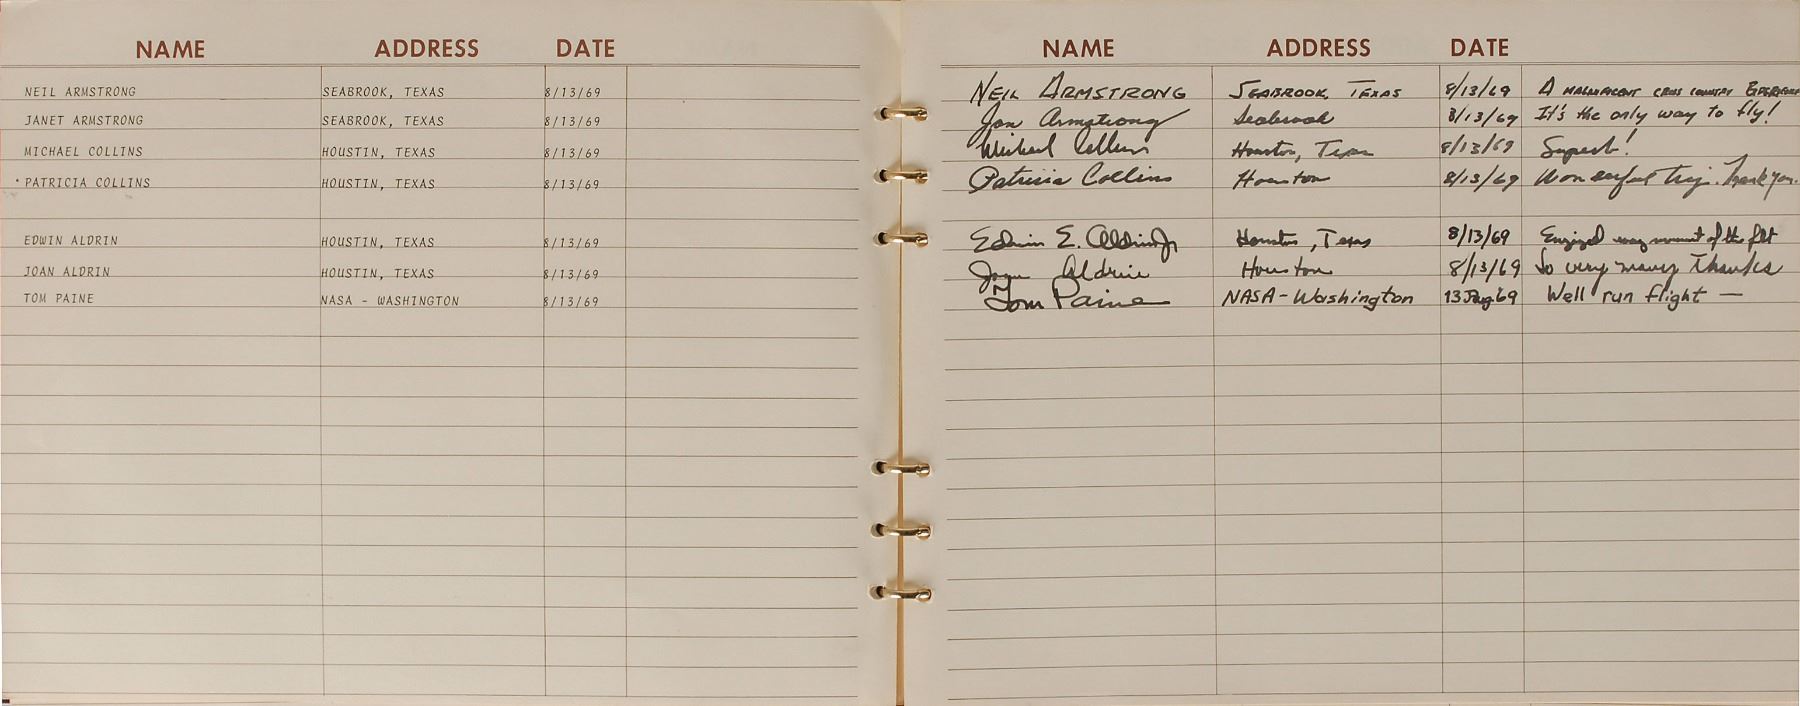 NAME ADDRESS DATE
NEIL ARMSTRONG SEABROOK, TEXAS 8/13/69
JANET ARMSTRONG SEABROOK, TEXAS 8/13/69
MICHAEL COLLINS HOUSTIN, TEXAS 8/13/69
PATRICIA COLLINS HOUSTIN, TEXAS 8/13/69
EDWIN ALDRIN HOUSTIN, TEXAS 8/13/69
JOAN ALDRIN HOUSTIN, TEXAS 8/13/69
TOM PAINE NASA - WASHINGTON 8/13/69
NAME ADDRESS DATE
NEIL ARMSTRONG SEABROOK, TEXAS 8/13/69 A MAGNIFICENT CROSS COUNTRY EXPERIENCE
Jan Armstrong Seabrook 8/13/69 It's the only way to fly!
Michael Collins Houston, Texas 8/13/69 Superb!
Patricia Collins Houston 8/13/69 Wonderful trip. Thank you.
Edwin E. Aldrin Jr Houston, Texas 8/13/69 Enjoyed every moment of the flt
Joan Aldrin Houston 8/13/69 So very many thanks
Tom Paine NASA - Washington 13 Aug '69 Well run flight —